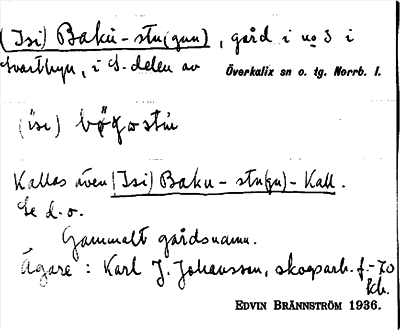 (Isi) Baku-stu(gun), gård i no 3 i
Svartbyn, i S-delen av Överkalix sn o. tg. Norrb. l.
(isi)
Kallas även (Isi) Baku-stu(gu)-Kall.
Se d. o.
Gammalt gårdsnamn.
Ägare: Karl J. Johansson, skogsarb. f. -70
kb.
EDVIN BRÄNNSTRÖM 1936.